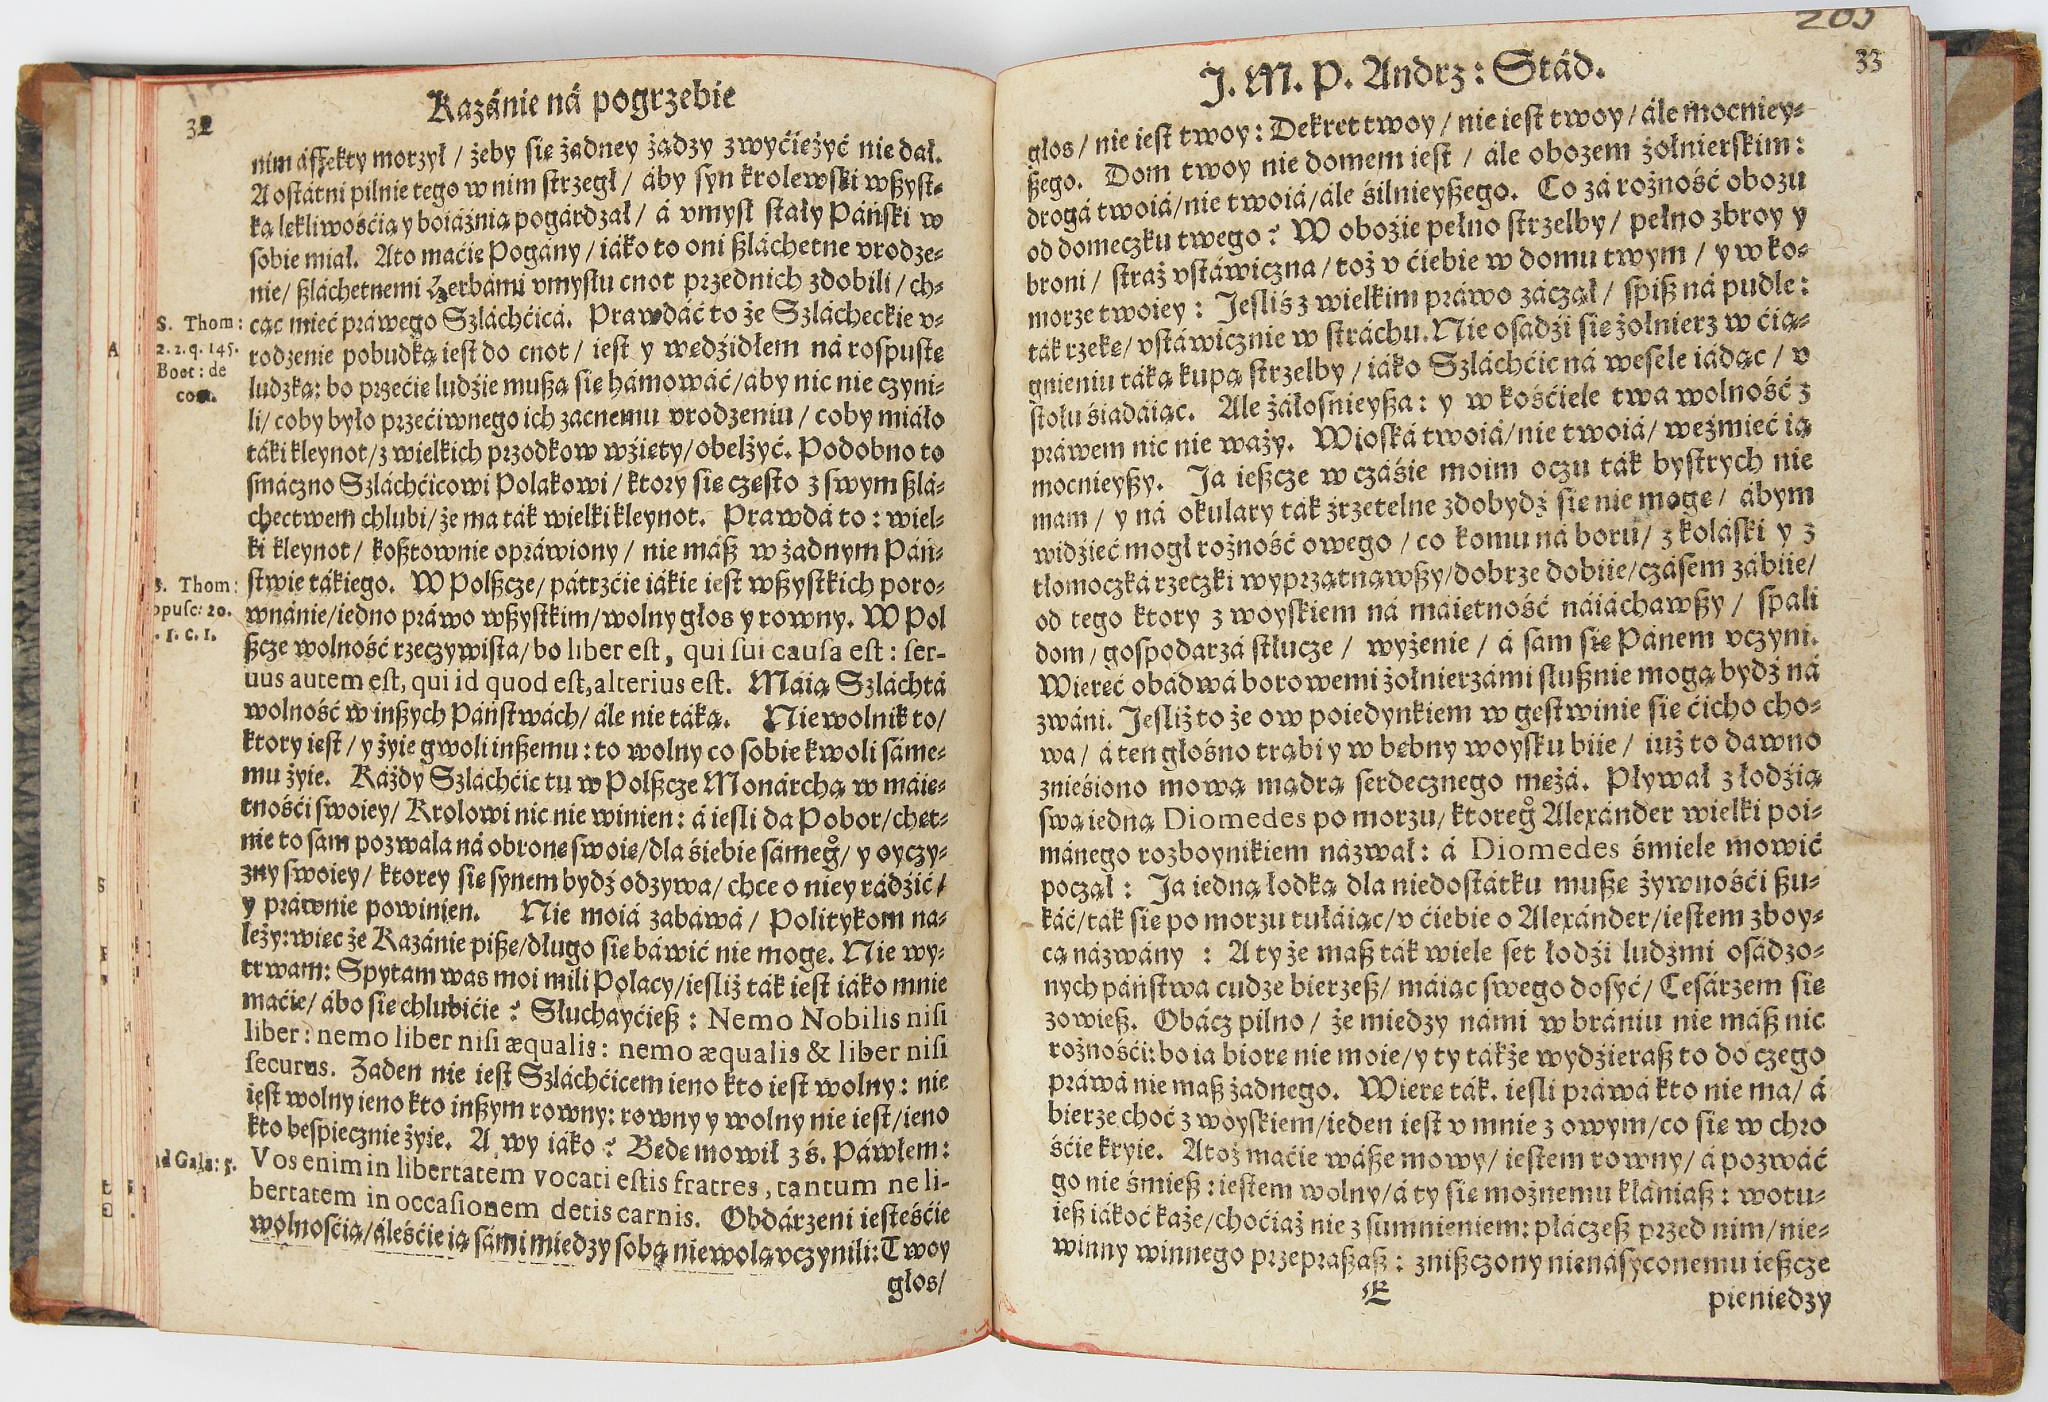 32
Kazánie ná pogrzebie
nim áffekty morzył / żeby się żadney żądzy zwyćiężyć nie dał.
A ostátni pilnie tego w nim strzegł / áby syn krolewski wßyst-
ką lękliwośćią y boiáźnią pogárdzał / á vmysł stały Páński w
sobie miał. Ato maćie Pogány / iáko to oni ßláchetne vrodze-
nie / ßláchetnemi Herbámi vmysłu cnot przednich zdobili / ch-
cąc mieć práwego Szláchćicá. Prawdáć to że Szlácheckie v-
rodzenie pobudką iest do cnot / iest y wędźidłem ná rospustę
ludzką: bo przećie ludźie mußą się hámowáć / áby nic nie czyni-
li / coby było przećiwnego ich zacnemu vrodzeniu / coby miáło
táki kleynot / z wielkich przodkow wźięty / obelżyć. Podobno to
smáczno Szláchćicowi Polakowi / ktory się często z swym ßlá-
chectwem chlubi / że ma ták wielki kleynot. Prawdá to : wiel-
ki kleynot / koßtownie opráwiony / nie máß w żadnym Páń-
stwie tákiego. W Polßcze / pátrzćie iákie iest wßystkich poro-
wnánie / iedno práwo wßystkim / wolny głos y rowny. W Pol
ßcze wolność rzeczywista / bo liber est, qui sui causa est : ser-
uus autem est, qui id quod est, alterius est. Máią Szláchtá
wolność w inßych Páństwách / ále nie táką. Niewolnik to /
ktory iest / y żyie gwoli inßemu : to wolny co sobie kwoli sáme-
mu żyie. Káżdy Szláchćic tu w Polßcze Monárchą w máię-
tnośći swoiey / Krolowi nic nie winien : á iesli da Pobor / chęt-
nie to sam pozwala ná obronę swoię / dla śiebie sámeg / y oyczy-
zny swoiey / ktorey się synem bydź odzywa / chce o niey rádźić /
y práwnie powinien. Nie moiá zabáwá / Politykom na-
leży: więc że Kazánie pißę / długo się báwić nie mogę. Nie wy-
trwam: Spytam was moi mili Polacy / iesliż ták iest iáko mnie
maćie / ábo się chlubićie ? Słuchayćieß : Nemo Nobilis nisi
liber : nemo liber nisi æqualis : nemo æqualis & liber nisi
securus. Żaden nie iest Szláchćicem ieno kto iest wolny : nie
iest wolny ieno kto inßym rowny: rowny y wolny nie iest / ieno
kto bespiecznie żyie. A wy iáko ? Będę mowił z ś. Páwłem :
Vos enim in libertatem vocati estis fratres, tantum ne li-
bertatem in occasionem detis carnis. Obdárzeni iesteśćie
wolnośćią / áleśćie ią sámi między sobą niewolą vczynili: Twoy
głos /
S. Thom:
2. 2. q. 145.
Boet: de
con.
S. Thom:
opusc: 20.
. 1. c. 1.
ad Gala: 5.
33
J. M. P. Andrz : Stád.
głos / nie iest twoy : Dekret twoy / nie iest twoy / ále mocniey-
ßego. Dom twoy nie domem iest / ále obozem żołnierskim :
drogá twoiá / nie twoiá / ále śilnieyßego. Co zá rożność obozu
od domeczku twego ? W oboźie pełno strzelby / pełno zbroy y
broni / straż vstáwiczna / toż v ćiebie w domu twym / y w ko-
morze twoiey : Iesliś z wielkim práwo záczął / śpiß ná pudle :
ták rzekę / vstáwicznie w stráchu. Nie osadźi się żołnierz w ćią-
gnieniu táką kupą strzelby / iáko Szláchćic ná wesele iádąc / v
stołu śiadáiąc. Ale żáłosnieyßa : y w kośćiele twa wolność z
práwem nic nie waży. Wioská twoiá / nie twoiá / weźmieć ią
mocnieyßy. Ja ießcze w czáśie moim oczu ták bystrych nie
mam / y ná okulary ták źrzetelne zdobydź się nie mogę / ábym
widźieć mogł rożność owego / co komu ná boru / z koláski y z
tłomoczká rzeczki wyprzątnąwßy / dobrze dobiie / czásem zábiie /
od tego ktory z woyskiem ná máiętność náiáchawßy / spali
dom / gospodarzá stłucze / wyżenie / á sam się Pánem vczyni.
Wiereć obádwá borowemi żołnierzámi słußnie mogą bydź ná
zwáni. Iesliż to że ow poiedynkiem w gęstwinie się ćicho cho-
wa / á ten głośno trąbi y w bębny woysku biie / iuż to dawno
znieśiono mową mądrą serdecznego mężá. Pływał z łodźią
swą iedną Diomedes po morzu / ktoreg Alexánder wielki poi-
mánego rozboynikiem názwał : á Diomedes śmiele mowić
począł : Ja iedną łodką dla niedostátku mußę żywnośći ßu-
káć / ták się po morzu tułáiąc / v ćiebie o Alexánder / iestem zboy-
cą názwány : A ty że maß ták wiele set łodźi ludźmi osádzo-
nych páństwa cudze bierzeß / máiąc swego dosyć / Cesárzem się
zowieß. Obácz pilno / że między námi w brániu nie máß nic
rożnośći: bo ia biorę nie moie / y ty tákże wydźieraß to do czego
práwá nie maß żadnego. Wierę ták. iesli práwá kto nie ma / á
bierze choć z woyskiem / ieden iest v mnie z owym / co się w chro
śćie kryie. Atoż maćie wáße mowy / iestem rowny / á pozwáć
go nie śmieß : iestem wolny / á ty się możnemu kłániaß : wotu-
ieß iákoć każe / choćiaż nie z sumnieniem: płáczeß przed nim / nie-
winny winnego przepraßaß : znißczony nienásyconemu ießcze
E
pieniędzy